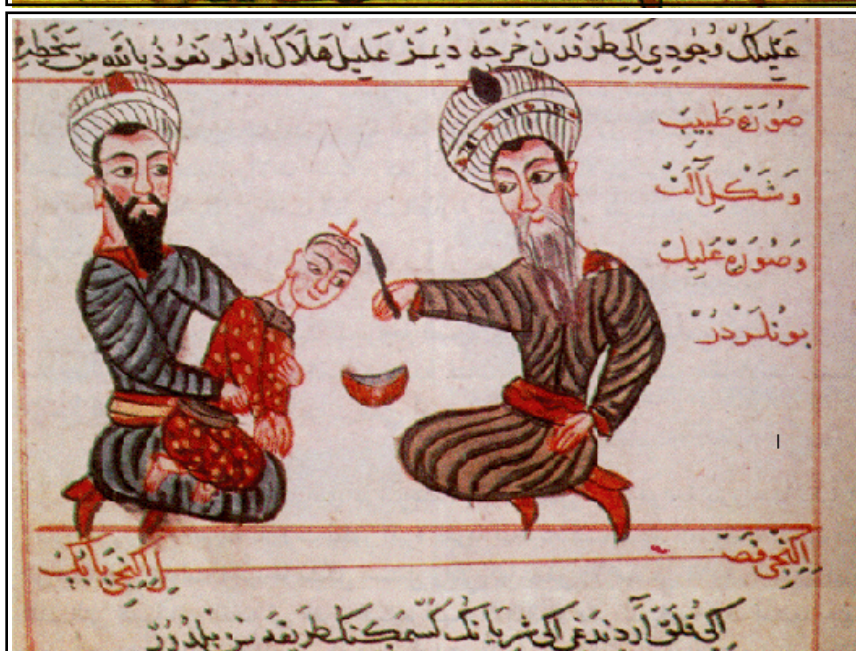 عليلك وجودي اكي طرفدن خرجه ديمز عليل هلاك اولر نعوذ بالله من سخطه
صورة طبيب
وشكل آلت
وصورة عليك
بونلردر
اكنجي فصل اكنجي بابك
اكي قلق آردندغي اكي شريانك كسمكنك طريقه سن بلدرر